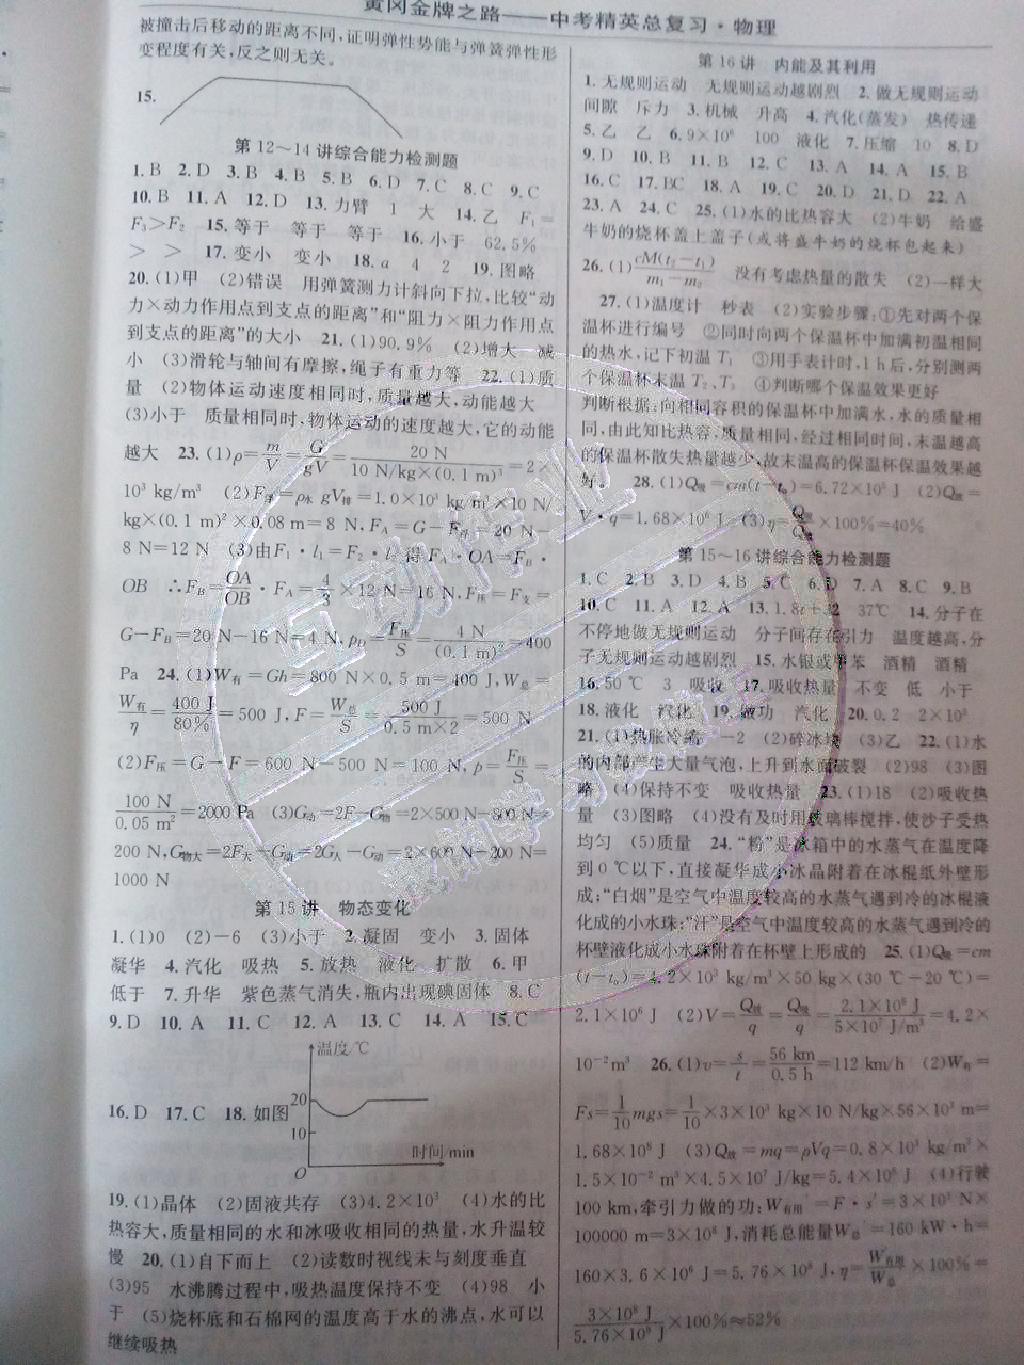 黄冈金牌之路——中考精英总复习·物理
被撞击后移动的距离不同,证明弹性势能与弹簧弹性形
变程度有关,反之则无关。
15.
第 12～14 讲综合能力检测题
1.B 2.D 3.B 4.B 5.B 6.D 7.C 8.C 9.C
10.B 11.A 12.D 13.力臂 1 大 14.乙 F₁=
F₃>F₂ 15.等于 等于 等于 16.小于 62.5%
> > 17.变小 变小 18.a 4 2 19.图略
20.(1)甲 (2)错误 用弹簧测力计斜向下拉,比较“动
力×动力作用点到支点的距离”和“阻力×阻力作用点
到支点的距离”的大小 21.(1)90.9% (2)增大 减
小 (3)滑轮与轴间有摩擦,绳子有重力等 22.(1)质
量 (2)物体运动速度相同时,质量越大,动能越大
(3)小于 质量相同时,物体运动的速度越大,它的动能
越大 23.(1)ρ=m/V=G/gV=20 N/10 N/kg×(0.1 m)³=2×
10³ kg/m³ (2)F浮=ρ水 gV排=1.0×10³ kg/m³×10 N/
kg×(0.1 m)²×0.08 m=8 N,F_A=G-F浮=20 N-
8 N=12 N (3)由F₁·l₁=F₂·l₂得F_A·OA=F_B·
OB ∴F_B=OA/OB·F_A=4/3×12 N=16 N,F压=F支=
G-F_B=20 N-16 N=4 N,p=F压/S=4 N/(0.1 m)²=400
Pa 24.(1)W有=Gh=800 N×0.5 m=400 J,W总=
W有/η=400 J/80%=500 J,F=W总/S=500 J/0.5 m×2=500 N
(2)F压=G-F=600 N-500 N=100 N,p=F压/S=
100 N/0.05 m²=2000 Pa (3)G动=2F-G物=2×500 N-800 N=
200 N,G物大=2F大-G动=2G人-G动=2×600 N-200 N=
1000 N
第 15 讲 物态变化
1.(1)0 (2)-6 (3)小于 2.凝固 变小 3.固体
凝华 4.汽化 吸热 5.放热 液化 扩散 6.甲
低于 7.升华 紫色蒸气消失,瓶内出现碘固体 8.C
9.D 10.A 11.C 12.A 13.C 14.A 15.C
温度/℃
16.D 17.C 18.如图
20
10
O
时间/min
19.(1)晶体 (2)固液共存 (3)4.2×10³ (4)水的比
热容大,质量相同的水和冰吸收相同的热量,水升温较
慢 20.(1)自下而上 (2)读数时视线未与刻度垂直
(3)95 水沸腾过程中,吸热温度保持不变 (4)98 小
于 (5)烧杯底和石棉网的温度高于水的沸点,水可以
继续吸热
第 16 讲 内能及其利用
1.无规则运动 无规则运动越剧烈 2.做无规则运动
间隙 斥力 3.机械 升高 4.汽化(蒸发) 热传递
5.乙 乙 6.9×10⁶ 100 液化 7.压缩 10 8.D
9.D 10.B 11.B 12.C 13.A 14.A 15.B
16.C 17.BC 18.A 19.C 20.D 21.D 22.A
23.A 24.C 25.(1)水的比热容大 (2)牛奶 给盛
牛奶的烧杯盖上盖子(或将盛牛奶的烧杯包起来)
26.(1)cM(t₂-t₁)/m₁-m₂ 没有考虑热量的散失 (2)一样大
27.(1)温度计 秒表 (2)实验步骤:①先对两个保
温杯进行编号 ②同时向两个保温杯中加满初温相同
的热水,记下初温 T₁ ③用手表计时,1 h后,分别测两
个保温杯末温 T₂、T₃ ④判断哪个保温效果更好
判断根据:向相同容积的保温杯中加满水,水的质量相
同,由此知比热容,质量相同,经过相同时间,末温越高
的保温杯散失热量越少,故末温高的保温杯保温效果越
好 28.(1)Q吸=cm(t-t₀)=6.72×10⁵ J (2)Q放=
V·q=1.68×10⁶ J (3)η=Q吸/Q放×100%=40%
第 15～16 讲综合能力检测题
1.C 2.B 3.D 4.B 5.C 6.D 7.A 8.C 9.B
10.C 11.A 12.A 13.1.8t+32 37℃ 14.分子在
不停地做无规则运动 分子间存在引力 温度越高,分
子无规则运动越剧烈 15.水银或甲苯 酒精 酒精
16.50℃ 3 吸收 17.吸收热量 不变 低 小于
18.液化 汽化 19.做功 汽化 20.0.2 2×10³
21.(1)热胀冷缩 -2 (2)碎冰块 (3)乙 22.(1)水
的内部产生大量气泡,上升到水面破裂 (2)98 (3)图
略 (4)保持不变 吸收热量 23.(1)18 (2)吸收热
量 (3)图略 (4)没有及时用玻璃棒搅拌,使沙子受热
均匀 (5)质量 24.“粉”是冰箱中的水蒸气在温度降
到0℃以下,直接凝华成小冰晶附着在冰棍纸外壁形
成;“白烟”是空气中温度较高的水蒸气遇到冷的冰棍液
化成的小水珠;“汗”是空气中温度较高的水蒸气遇到冷的
杯壁液化成小水珠附着在杯壁上形成的 25.(1)Q吸=cm
(t-t₀)=4.2×10³ kg/m³×50 kg×(30℃-20℃)=
2.1×10⁶ J (2)V=Q放/q=Q吸/q=2.1×10⁶ J/5×10⁷ J/m³=4.2×
10⁻²m³ 26.(1)v=s/t=56 km/0.5 h=112 km/h (2)W有=
Fs=1/10mgs=1/10×3×10³ kg×10 N/kg×56×10³ m=
1.68×10⁸ J (3)Q放=mq=ρVq=0.8×10³ kg/m³×
1.5×10⁻² m³×4.5×10⁷ J/kg=5.4×10⁸ J (4)行驶
100 km,牵引力做的功:W有用=F·s=3×10³ N×
100000 m=3×10⁸ J,消耗总能量W总=160 kW·h=
160×3.6×10⁶ J=5.76×10⁸ J,η=W有用/W总×100%=
3×10⁸ J/5.76×10⁸ J×100%≈52%